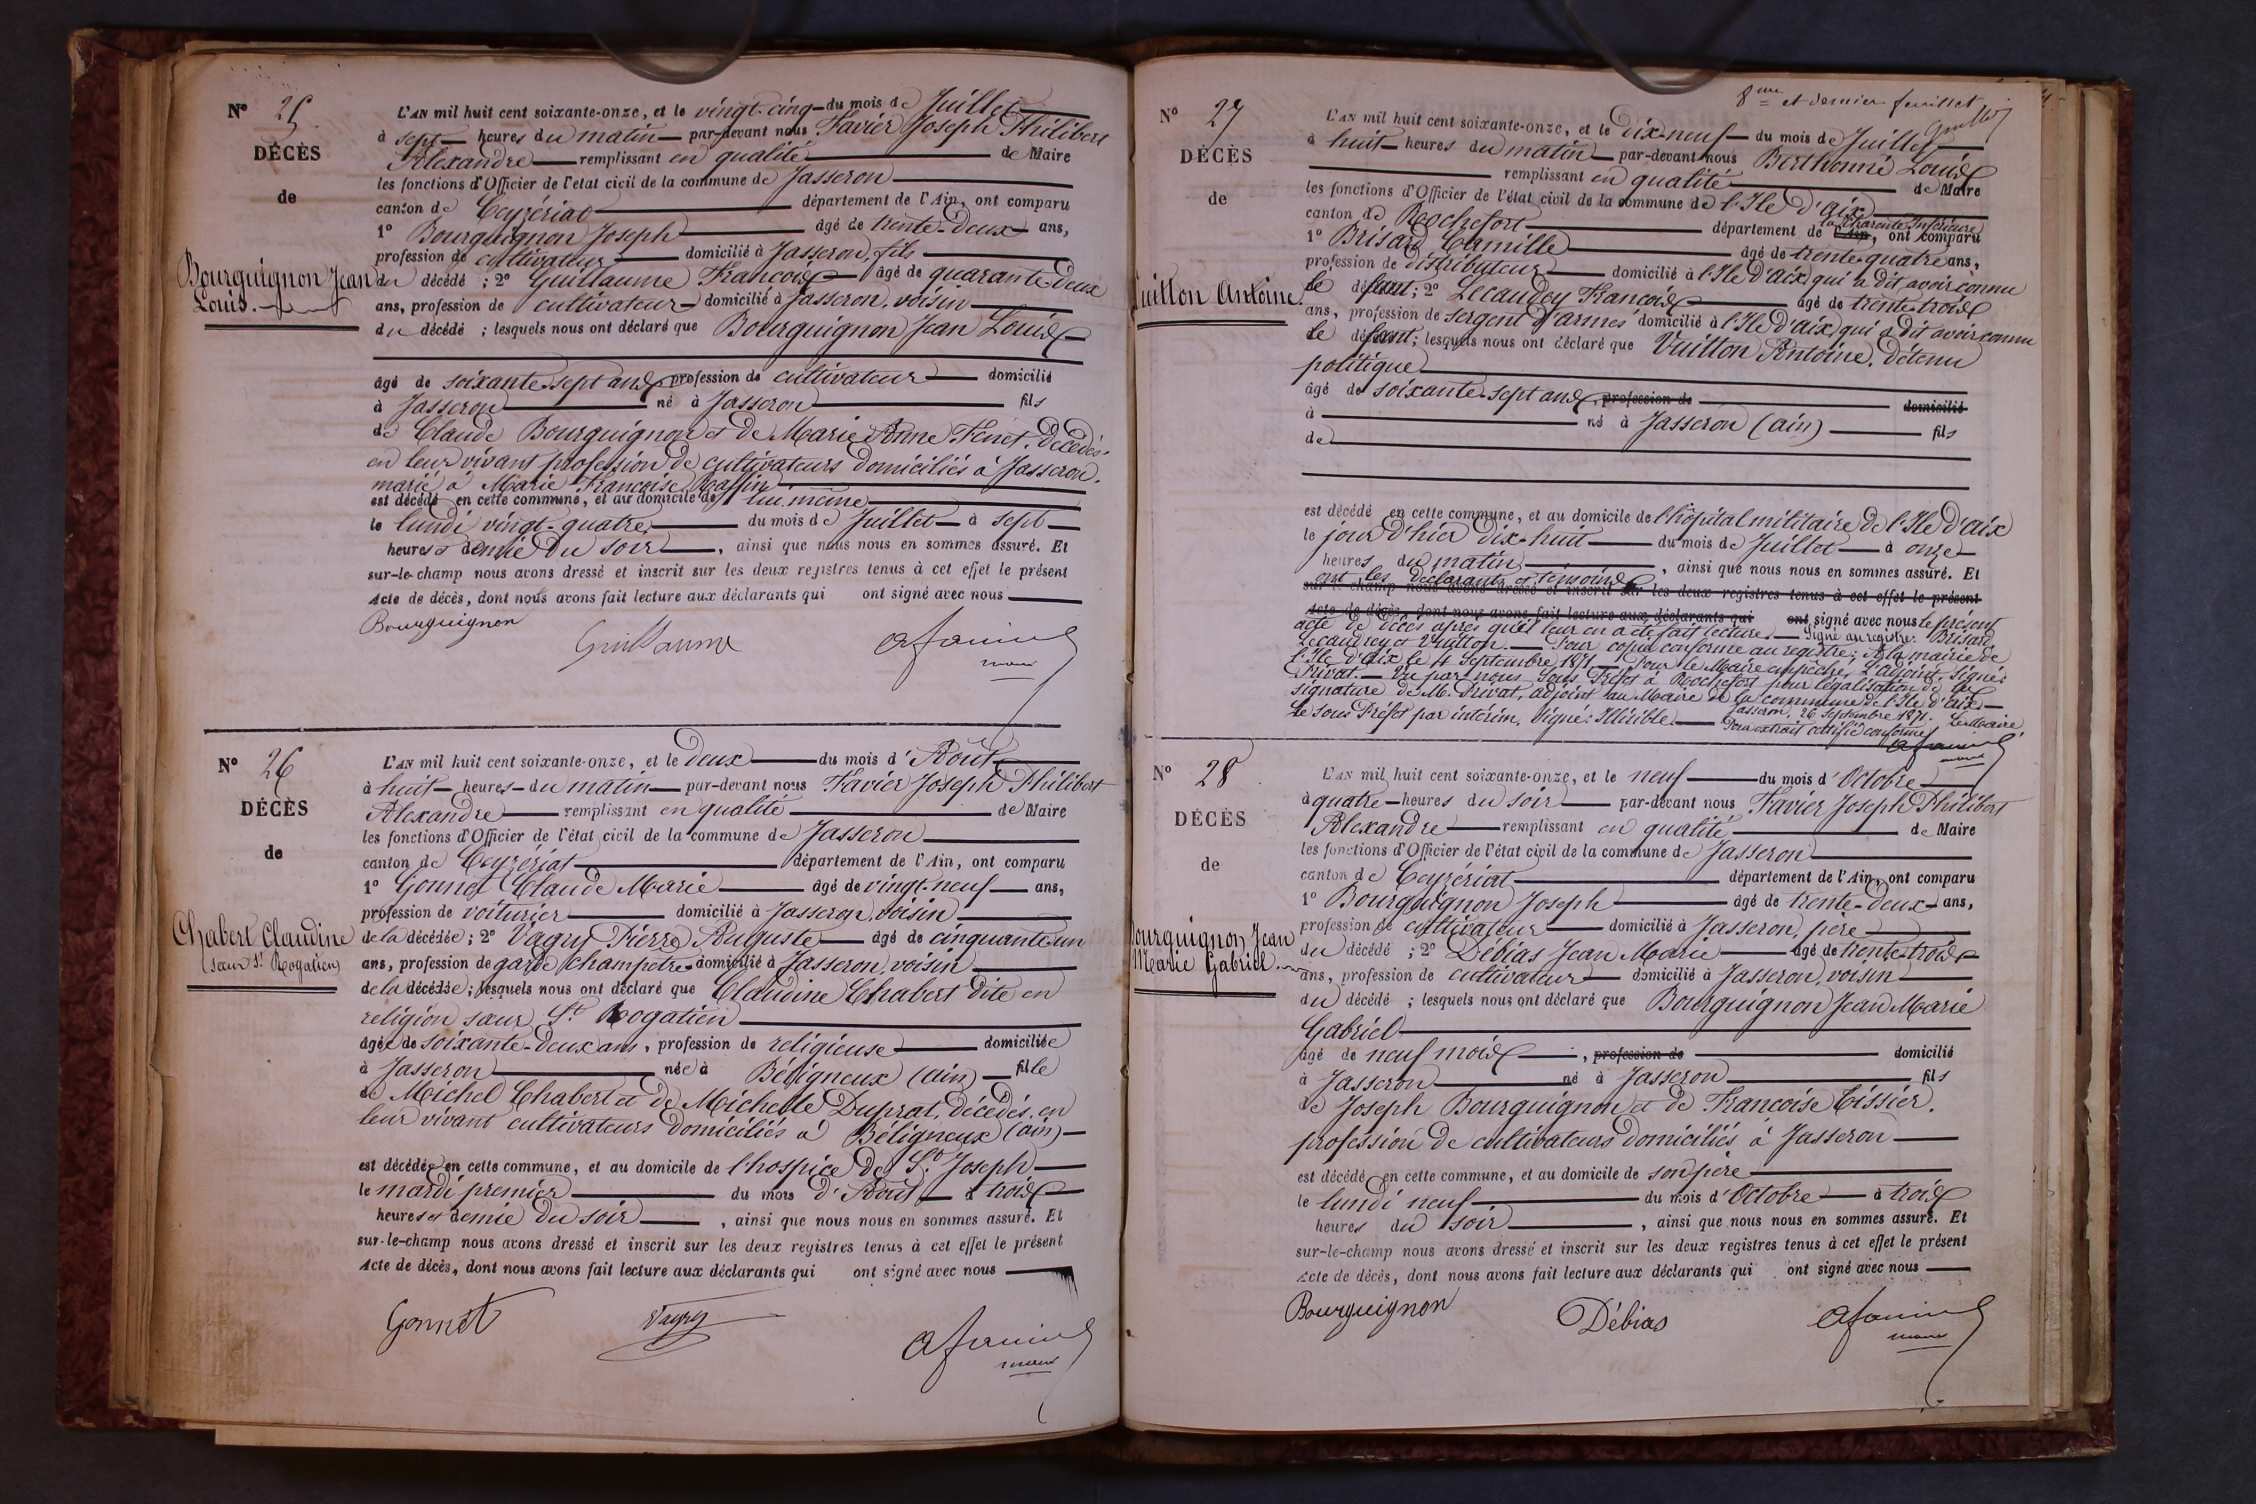 N° 25
DÉCÈS
de
Bourguignon Jean
Louis.
L'AN mil huit cent soixante-onze, et le vingt-cinq du mois de Juillet
à sept heures du matin par-devant nous Favier Joseph Philibert
Alexandre remplissant en qualité de Maire
les fonctions d'Officier de l'état civil de la commune de Jasseron
canton de Ceyzériat département de l'Ain, ont comparu
1° Bourguignon Joseph âgé de trente-deux ans,
profession de cultivateur domicilié à Jasseron, fils
du décédé ; 2° Guillaume François âgé de quarante-deux
ans, profession de cultivateur domicilié à Jasseron, voisin
du décédé ; lesquels nous ont déclaré que Bourguignon Jean Louis
âgé de soixante-sept ans, profession de cultivateur domicilié
à Jasseron né à Jasseron fils
de Claude Bourguignon et de Marie Anne décédés
en leur vivant profession de cultivateurs domiciliés à Jasseron.
marié à Marie Françoise
est décédé en cette commune, et au domicile de lui même
le lundi vingt-quatre du mois de Juillet à sept
heures et demie du soir, ainsi que nous nous en sommes assuré. Et
sur-le-champ nous avons dressé et inscrit sur les deux registres tenus à cet effet le présent
Acte de décès, dont nous avons fait lecture aux déclarants qui ont signé avec nous
Bourguignon Guillaume
maire
N° 26
DÉCÈS
de
Chabert Claudine
(sœur St Rogatien)
L'AN mil huit cent soixante-onze, et le deux du mois d'Août
à huit heures du matin par-devant nous Favier Joseph Philibert
Alexandre remplissant en qualité de Maire
les fonctions d'Officier de l'état civil de la commune de Jasseron
canton de Ceyzériat département de l'Ain, ont comparu
1° Gonnet Claude Marie âgé de vingt-neuf ans,
profession de voiturier domicilié à Jasseron, voisin
de la décédée ; 2° Vagry Pierre Auguste âgé de cinquante-un
ans, profession de garde champêtre domicilié à Jasseron, voisin
de la décédée ; lesquels nous ont déclaré que Claudine Chabert dite en
religion sœur St Rogatien
âgée de soixante-deux ans, profession de religieuse domiciliée
à Jasseron née à Béligneux (ain) fille
de Michel Chabert et de Michelle Duprat, décédés, en
leur vivant cultivateurs domiciliés à Béligneux (ain)
est décédée en cette commune, et au domicile de l'hospice de St Joseph
le mardi premier du mois d'Août à trois
heures et demie du soir, ainsi que nous nous en sommes assuré. Et
sur-le-champ nous avons dressé et inscrit sur les deux registres tenus à cet effet le présent
Acte de décès, dont nous avons fait lecture aux déclarants qui ont signé avec nous
Gonnet Vagry
maire
8me et dernier feuillet
N° 27
DÉCÈS
de
Vuitton Antoine.
L'AN mil huit cent soixante-onze, et le dix-neuf du mois de Juillet
à huit heures du matin par-devant nous Berthomé Louis
remplissant en qualité de Maire
les fonctions d'Officier de l'état civil de la commune de l'Ile d'aix
canton de Rochefort département de l'Ain la Charente Inférieure, ont comparu
1° Brisard Camille âgé de trente-quatre ans,
profession de distributeur domicilié à l'Ile d'aix qui a dit avoir connu
le défunt ; 2° Lecaudey François âgé de trente-trois
ans, profession de sergent d'armes domicilié à l'Ile d'aix qui a dit avoir connu
le défunt ; lesquels nous ont déclaré que Vuitton Antoine, détenu
politique
âgé de soixante-sept ans, profession de domicilié
à né à Jasseron (ain) fils
de
est décédé en cette commune, et au domicile de l'hôpital militaire de l'Ile d'aix
le jour d'hier dix-huit du mois de Juillet à onze
heures du matin, ainsi que nous nous en sommes assuré. Et
ont les déclarants et témoins
sur-le-champ nous avons dressé et inscrit sur les deux registres tenus à cet effet le présent
Acte de décès, dont nous avons fait lecture aux déclarants qui ont signé avec nous le présent
acte de décès après qu'il leur en a été fait lecture. Signé au registre: Brisard
Lecaudey et Vuitton. Pour copie conforme au registre; A la mairie de
l'Ile d'aix le 4 Septembre 1871. Pour le Maire empêché, L'adjoint, signé:
Privat. Vu par nous Sous Préfet à Rochefort pour légalisation de la
signature de M. Privat, adjoint au Maire de la commune de l'Ile d'aix
Le Sous Préfet par intérim, Signé: Illisible. Jasseron, 26 Septembre 1871. Le Maire
Pour extrait certifié conforme
N° 28
DÉCÈS
de
Bourguignon Jean
Marie Gabriel.
L'AN mil huit cent soixante-onze, et le neuf du mois d'Octobre
à quatre heures du soir par-devant nous Favier Joseph Philibert
Alexandre remplissant en qualité de Maire
les fonctions d'Officier de l'état civil de la commune de Jasseron
canton de Ceyzériat département de l'Ain, ont comparu
1° Bourguignon Joseph âgé de trente-deux ans,
profession de cultivateur domicilié à Jasseron, père
du décédé ; 2° Débias Jean Marie âgé de trente-trois
ans, profession de cultivateur domicilié à Jasseron, voisin
du décédé ; lesquels nous ont déclaré que Bourguignon Jean Marie
Gabriel
âgé de neuf mois, profession de domicilié
à Jasseron né à Jasseron fils
de Joseph Bourguignon et de Françoise Tissier.
profession de cultivateurs domiciliés à Jasseron
est décédé en cette commune, et au domicile de son père
le lundi neuf du mois d'Octobre à trois
heures du soir, ainsi que nous nous en sommes assuré. Et
sur-le-champ nous avons dressé et inscrit sur les deux registres tenus à cet effet le présent
Acte de décès, dont nous avons fait lecture aux déclarants qui ont signé avec nous
Bourguignon Débias
maire